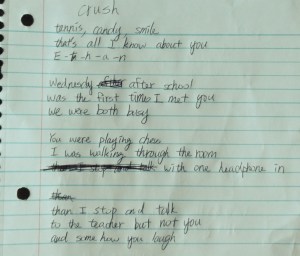 Crush
tennis, candy, smile
that's all I know about you
E-t-h-a-n
Wednesday after after school
was the first times I met you
we were both busy
You were playing chess
I was walking through the room
with one headphone in
than
than I stop and talk
to the teacher but not you
and some how you laugh